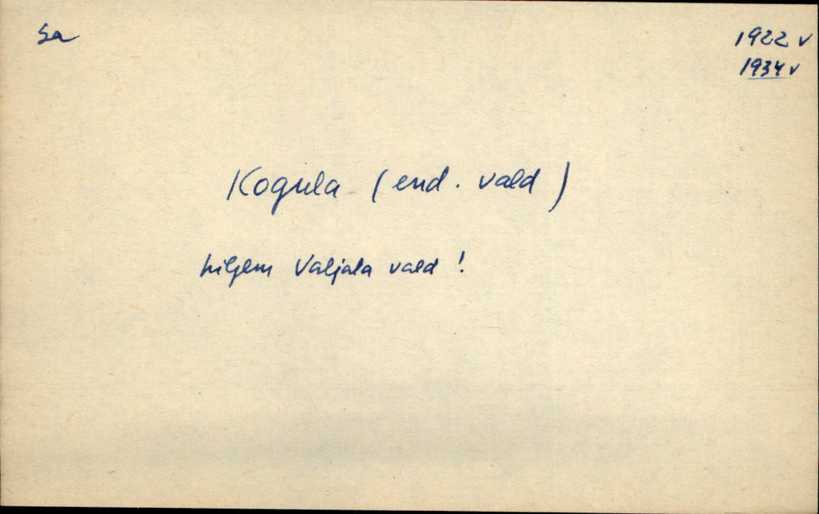 Sa
1922 v
1934 v
Kogula (end. vald)
hiljem Valjala vald!